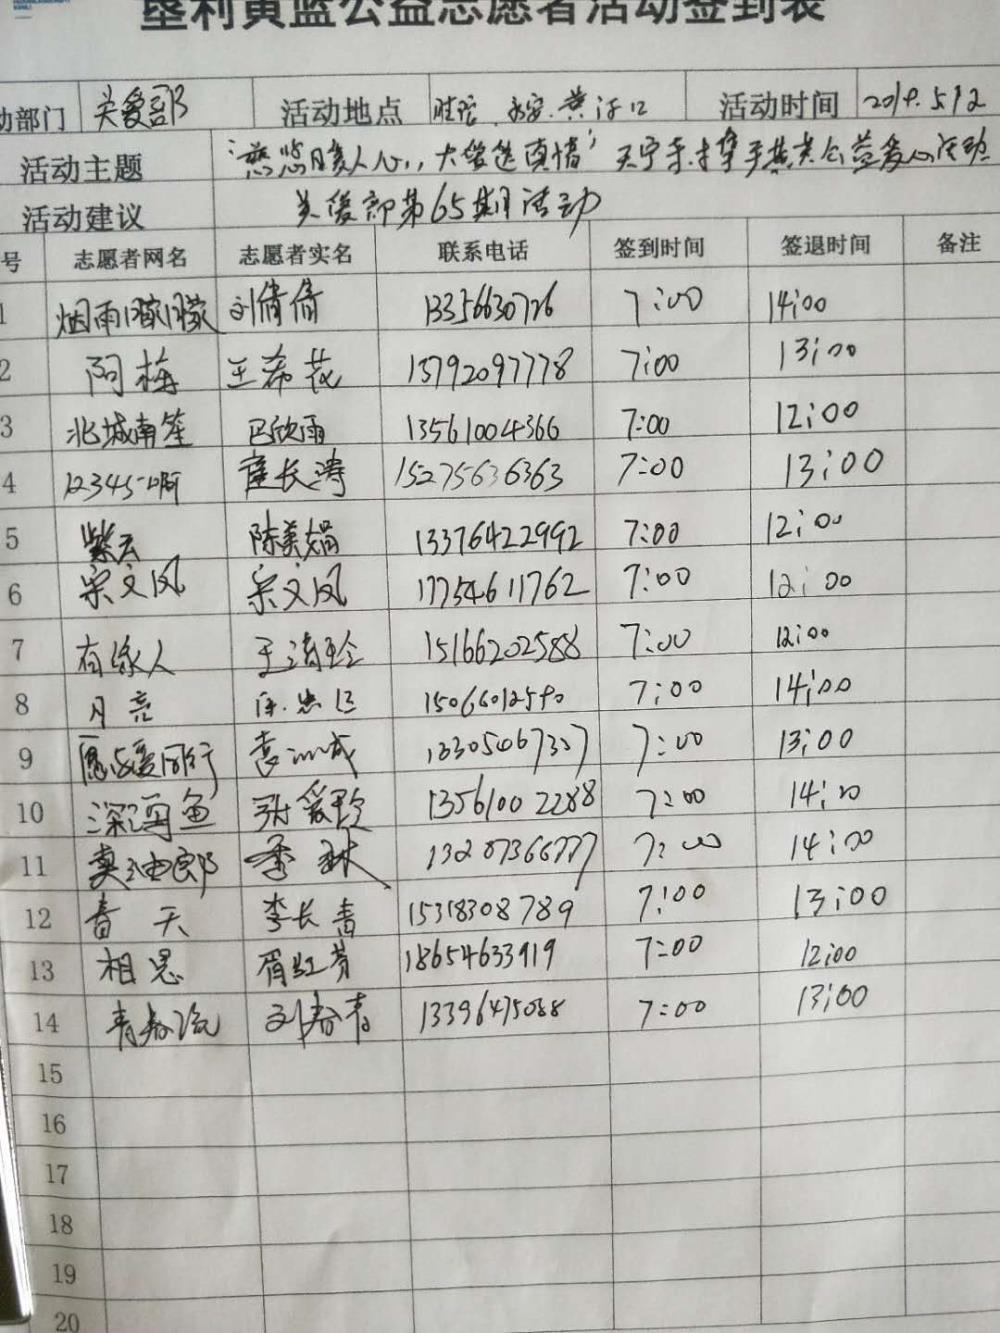 垦利黄蓝公益志愿者活动签到表
动部门 关爱部 活动地点 胜坨、永安、黄河口 活动时间 2019.5.12
活动主题 “慈悲暖人心,大爱送真情” 天宁寺携手黄蓝公益爱心活动
活动建议 关爱部第65期活动
号 志愿者网名 志愿者实名 联系电话 签到时间 签退时间 备注
1 烟雨朦朦 刘倩倩 13356630726 7:00 14:00
2 阿梅 王希花 15792097778 7:00 13:00
3 北城南笙 巴欣雨 13561004366 7:00 12:00
4 12345啊 崔长涛 15275636363 7:00 13:00
5 紫云 陈美娟 13376422992 7:00 12:00
6 宗文凤 宗文凤 17754611762 7:00 12:00
7 有缘人 于清玲 15166202588 7:00 12:00
8 月亮 15066012590 7:00 14:00
9 愿与爱同行 7:00 13:00
10 深海鱼 张爱玲 13561002288 7:00 14:00
11 卖油郎 季林 13287366777 7:00 14:00
12 春天 李长青 15318308789 7:00 13:00
13 相思 胥红芳 18654633919 7:00 12:00
14 青春流 刘春青 13396475088 7:00 13:00
15
16
17
18
19
20